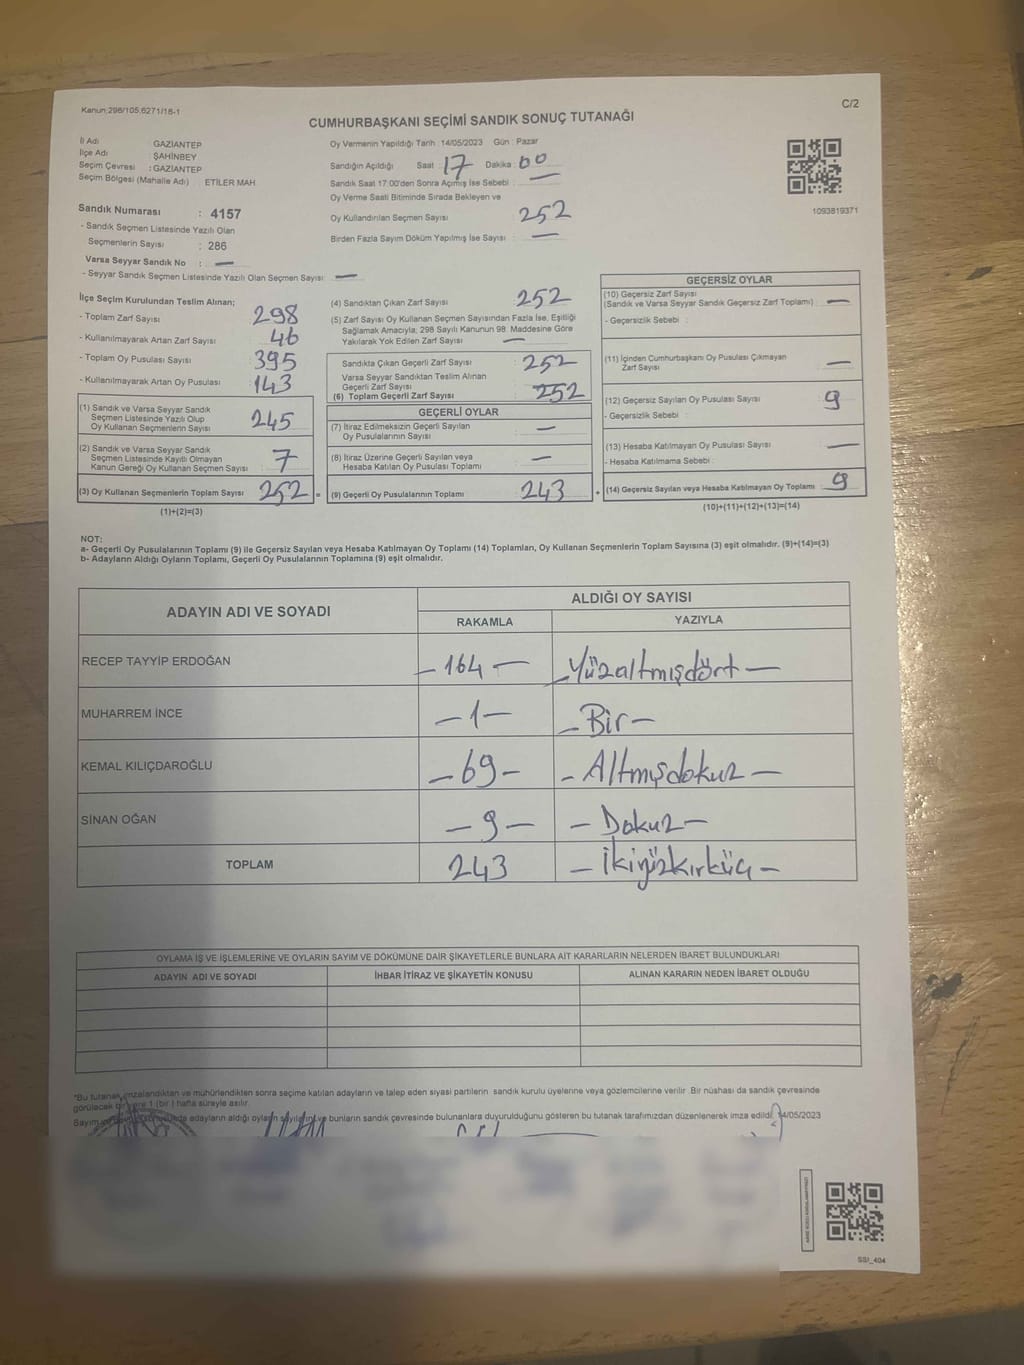 Kanun:298/105;6271/18-1
C/2
CUMHURBAŞKANI SEÇİMİ SANDIK SONUÇ TUTANAĞI
İl Adı GAZİANTEP
İlçe Adı : ŞAHİNBEY
Seçim Çevresi : GAZİANTEP
Seçim Bölgesi (Mahalle Adı) ETİLER MAH
Oy Vermenin Yapıldığı Tarih : 14/05/2023 Gün : Pazar
Sandığın Açıldığı Saat : 17 Dakika : 00
Sandık Saat 17:00'den Sonra Açımış İse Sebebi : —
Oy Verme Saati Bitiminde Sırada Bekleyen ve
Oy Kullandırılan Seçmen Sayısı 252
Birden Fazla Sayım Döküm Yapılmış İse Sayısı : —
1093819371
Sandık Numarası : 4157
- Sandık Seçmen Listesinde Yazılı Olan
Seçmenlerin Sayısı : 286
Varsa Seyyar Sandık No : —
- Seyyar Sandık Seçmen Listesinde Yazılı Olan Seçmen Sayısı: —
İlçe Seçim Kurulundan Teslim Alınan;
- Toplam Zarf Sayısı 298
- Kullanılmayarak Artan Zarf Sayısı : 46
- Toplam Oy Pusulası Sayısı : 395
- Kullanılmayarak Artan Oy Pusulası : 143
(1) Sandık ve Varsa Seyyar Sandık
Seçmen Listesinde Yazılı Olup
Oy Kullanan Seçmenlerin Sayısı 245
(2) Sandık ve Varsa Seyyar Sandık
Seçmen Listesinde Kayıtlı Olmayan
Kanun Gereği Oy Kullanan Seçmen Sayısı : 7
(3) Oy Kullanan Seçmenlerin Toplam Sayısı : 252 =
(1)+(2)=(3)
(4) Sandıktan Çıkan Zarf Sayısı : 252
(5) Zarf Sayısı Oy Kullanan Seçmen Sayısından Fazla İse, Eşitliği
Sağlamak Amacıyla; 298 Sayılı Kanunun 98. Maddesine Göre
Yakılarak Yok Edilen Zarf Sayısı : —
Sandıkta Çıkan Geçerli Zarf Sayısı : 252
Varsa Seyyar Sandıktan Teslim Alınan
Geçerli Zarf Sayısı :
(6) Toplam Geçerli Zarf Sayısı : 252
GEÇERLİ OYLAR
(7) İtiraz Edilmeksizin Geçerli Sayılan
Oy Pusulalarının Sayısı : —
(8) İtiraz Üzerine Geçerli Sayılan veya
Hesaba Katılan Oy Pusulası Toplamı : —
(9) Geçerli Oy Pusulalarının Toplamı : 243 +
GEÇERSİZ OYLAR
(10) Geçersiz Zarf Sayısı
(Sandık ve Varsa Seyyar Sandık Geçersiz Zarf Toplamı) : —
- Geçersizlik Sebebi :
(11) İçinden Cumhurbaşkanı Oy Pusulası Çıkmayan
Zarf Sayısı : —
(12) Geçersiz Sayılan Oy Pusulası Sayısı : 9
- Geçersizlik Sebebi :
(13) Hesaba Katılmayan Oy Pusulası Sayısı : —
- Hesaba Katılmama Sebebi :
(14) Geçersiz Sayılan veya Hesaba Katılmayan Oy Toplamı : 9
(10)+(11)+(12)+(13)=(14)
NOT:
a- Geçerli Oy Pusulalarının Toplamı (9) ile Geçersiz Sayılan veya Hesaba Katılmayan Oy Toplamı (14) Toplamları, Oy Kullanan Seçmenlerin Toplam Sayısına (3) eşit olmalıdır. (9)+(14)=(3)
b- Adayların Aldığı Oyların Toplamı, Geçerli Oy Pusulalarının Toplamına (9) eşit olmalıdır.
ADAYIN ADI VE SOYADI
ALDIĞI OY SAYISI
RAKAMLA YAZIYLA
RECEP TAYYİP ERDOĞAN — 164 — — Yüzaltmışdört —
MUHARREM İNCE — 1 — — Bir —
KEMAL KILIÇDAROĞLU — 69 — — Altmışdokuz —
SİNAN OĞAN — 9 — — Dokuz —
TOPLAM 243 — İkiyüzkırküç —
OYLAMA İŞ VE İŞLEMLERİNE VE OYLARIN SAYIM VE DÖKÜMÜNE DAİR ŞİKAYETLERLE BUNLARA AİT KARARLARIN NELERDEN İBARET BULUNDUKLARI
ADAYIN ADI VE SOYADI İHBAR İTİRAZ VE ŞİKAYETİN KONUSU ALINAN KARARIN NEDEN İBARET OLDUĞU
*Bu tutanak imzalandıktan ve mühürlendikten sonra seçime katılan adayların ve talep eden siyasi partilerin sandık kurulu üyelerine veya gözlemcilerine verilir. Bir nüshası da sandık çevresinde
görülecek bir yere 1 (bir) hafta süreyle asılır.
Sayım adayların aldığı oyları sayıları ve bunların sandık çevresinde bulunanlara duyurulduğunu gösteren bu tutanak tarafımızdan düzenlenerek imza edildi. 14/05/2023
SSI_404